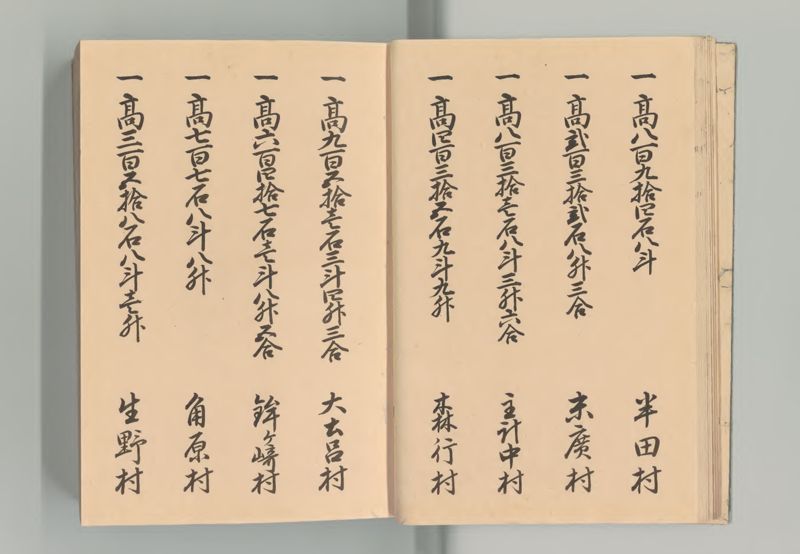 一 高八百九拾四石八斗 半田村
一 高弐百三拾弐石八升三合 末廣村
一 高八百三拾壱石八斗三升六合 主計中村
一 高四百三拾五石九斗九升 森行村
一 高九百五拾壱石三斗四升三合 大土呂村
一 高六百四拾七石壱斗八升五合 鉾ヶ崎村
一 高七百七石八斗八升 角原村
一 高三百五拾八石八斗壱升 生野村